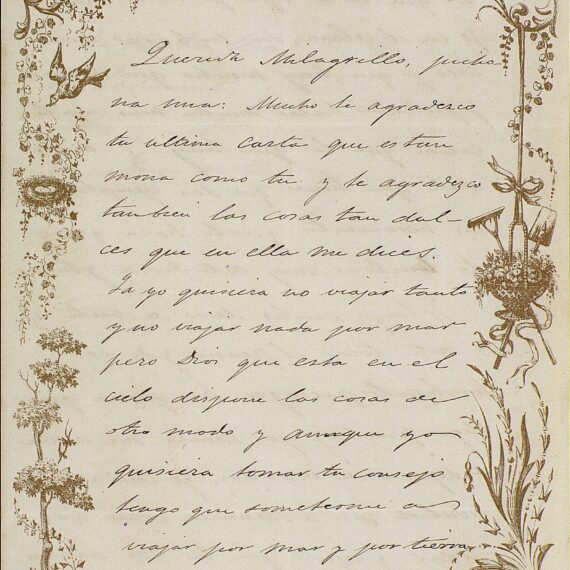 Querida Milagrillo, picho
na mia: Mucho te agradezco
tu ultima carta que es tan
mona como tu y te agradezco
tambien las cosas tan dul-
ces que en ella me dices.
Ya yo quisiera no viajar tanto
y no viajar nada por mar
pero Dios que esta en el
cielo dispone las cosas de
otro modo y aunque yo
quisiera tomar tu consejo
tengo que someterme a
viajar por mar y por tierra